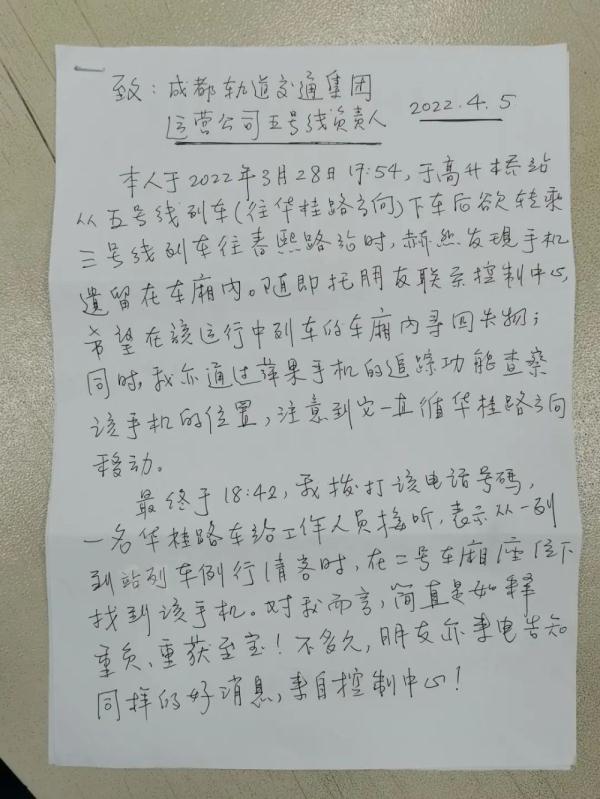 致：成都轨道交通集团
运营公司五号线负责人
2022.4.5
本人于2022年3月28日17:54，于高升桥站
从五号线列车(往华桂路方向)下车后欲转乘
三号线列车往春熙路站时，赫然发現手机
遗留在车厢内。随即托朋友联系控制中心，
希望在該运行中列车的车厢内寻回失物；
同时，我亦通过苹果手机的追踪功能查察
该手机的位置，注意到它一直循华桂路方向
移动。
最终于18:42，我拨打该电话号码，
一名华桂路车站工作人员接听，表示从一列
到站列车例行清客时，在二号车厢座位下
找到该手机。对我而言，简直是如释
重负、重获至宝！不多久，朋友亦来电告知
同样的好消息，来自控制中心！